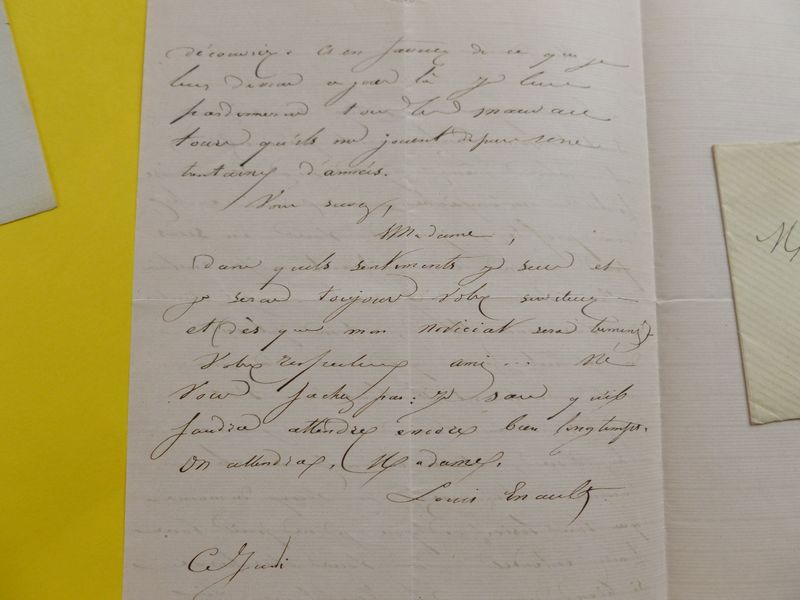 découvrir. Et en faveur de ce que je
leur devrai ce jour là je leur
pardonnerai tous les mauvais
tours qu'ils me jouent depuis une
trentaine d'années.
Vous savez,
Madame,
Dans quels sentiments je suis et
je serai toujours votre serviteur
et dès que mon noviciat sera terminé
Votre respectueux ami... Ne
Vous fachez pas : je sais qu'il
faudra attendre encore bien longtemps.
On attendra, Madame.
Louis Enault
Ce Jeudi